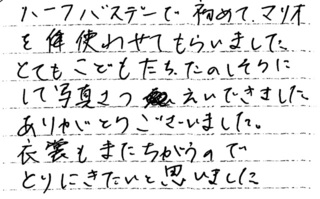 ハーフバスデーで初めてマリオ
を 使わせてもらいました
とてもこどもたち、たのしそうに
して写真さつ えいできました
ありがとうございました。
衣裳もまたちがうので
とりにきたいと思いました